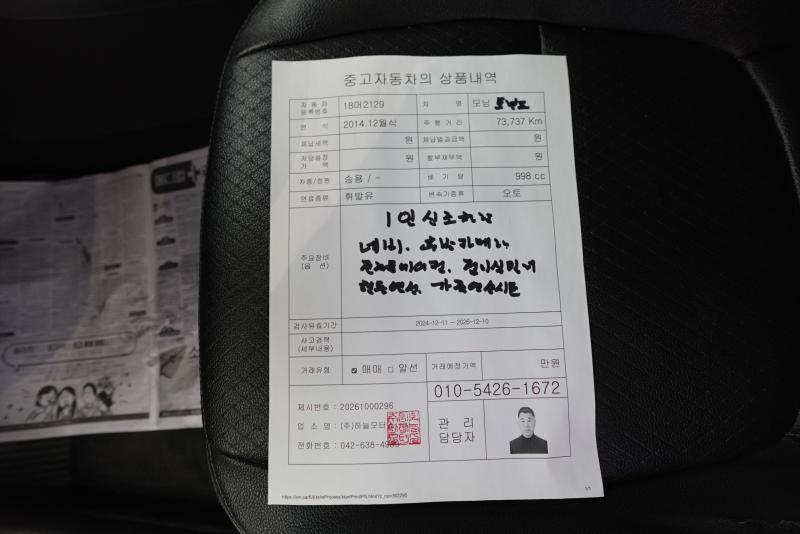 중고자동차의 상품내역
자동차등록번호 18머2129 차 명 모닝
연 식 2014.12월식 주행거리 73,737 Km
체납세액 원 체납벌과금액 원
저당설정가액 원 할부채무액 원
차종/정원 승용 / - 배기량 998 cc
연료종류 휘발유 변속기종류 오토
주요장비(옵 션)
1인신조차량
네비, 후방카메라
핸들열선, 가죽열선시트
검사유효기간 2024-12-11 ~ 2026-12-10
사고경력(세부내용)
거래유형 매매 알선 거래예정가액 만원
010-5426-1672
제시번호 : 20261000296
업 소 명 : (주)하늘모터
전화번호 : 042-638-4
관 리 담당자
1/1